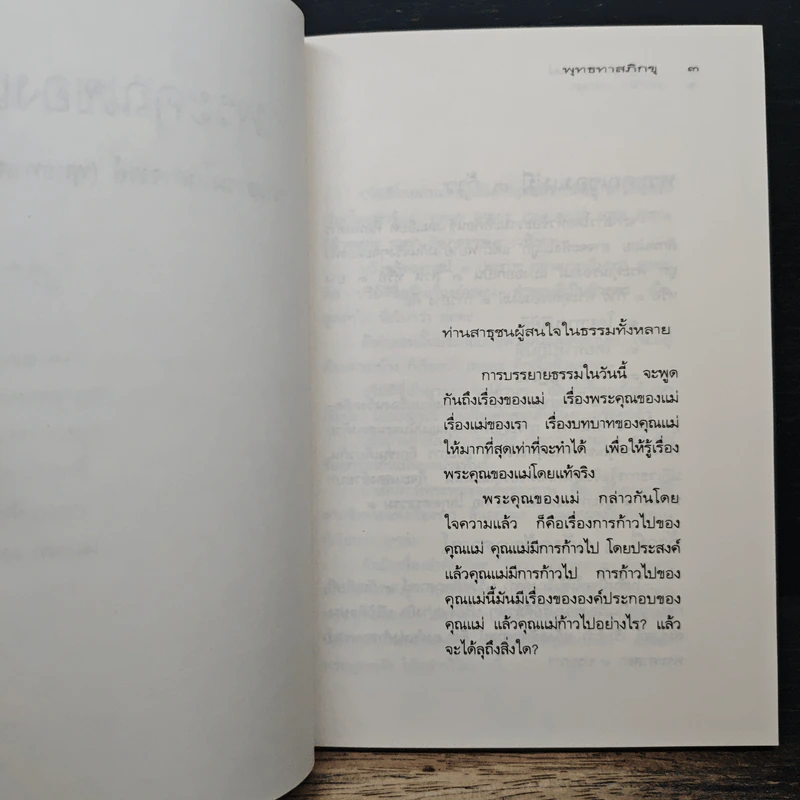 พุทธทาสภิกขุ ๓
ท่านสาธุชนผู้สนใจในธรรมทั้งหลาย
การบรรยายธรรมในวันนี้ จะพูด
กันถึงเรื่องของแม่ เรื่องพระคุณของแม่
เรื่องแม่ของเรา เรื่องบทบาทของคุณแม่
ให้มากที่สุดเท่าที่จะทำได้ เพื่อให้รู้เรื่อง
พระคุณของแม่โดยแท้จริง
พระคุณของแม่ กล่าวกันโดย
ใจความแล้ว ก็คือเรื่องการก้าวไปของ
คุณแม่ คุณแม่มีการก้าวไป โดยประสงค์
แล้วคุณแม่มีการก้าวไป การก้าวไปของ
คุณแม่นี้มันมีเรื่องขององค์ประกอบของ
คุณแม่ แล้วคุณแม่ก้าวไปอย่างไร? แล้ว
จะได้ลุถึงสิ่งใด?